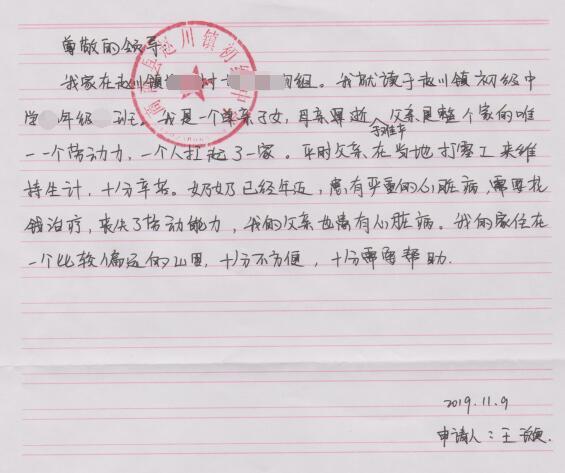 尊敬的领导:
我家在赵川镇村组。我就读于赵川镇初级中
学年级班, 我是一个单亲子女, 母亲早逝, 父亲是整个家的唯
一一个劳动力, 一个人扛起了一家。平时父亲在当地打零工来维
持生计, 十分辛苦。奶奶已经年迈, 患有严重的心脏病, 需要花
钱治疗, 丧失了劳动能力, 我的父亲也患有心脏病。我的家住在
一个比较偏远的山里, 十分不方便, 十分需要帮助.
2019.11.9
申请人: 王
县赵川镇初级中